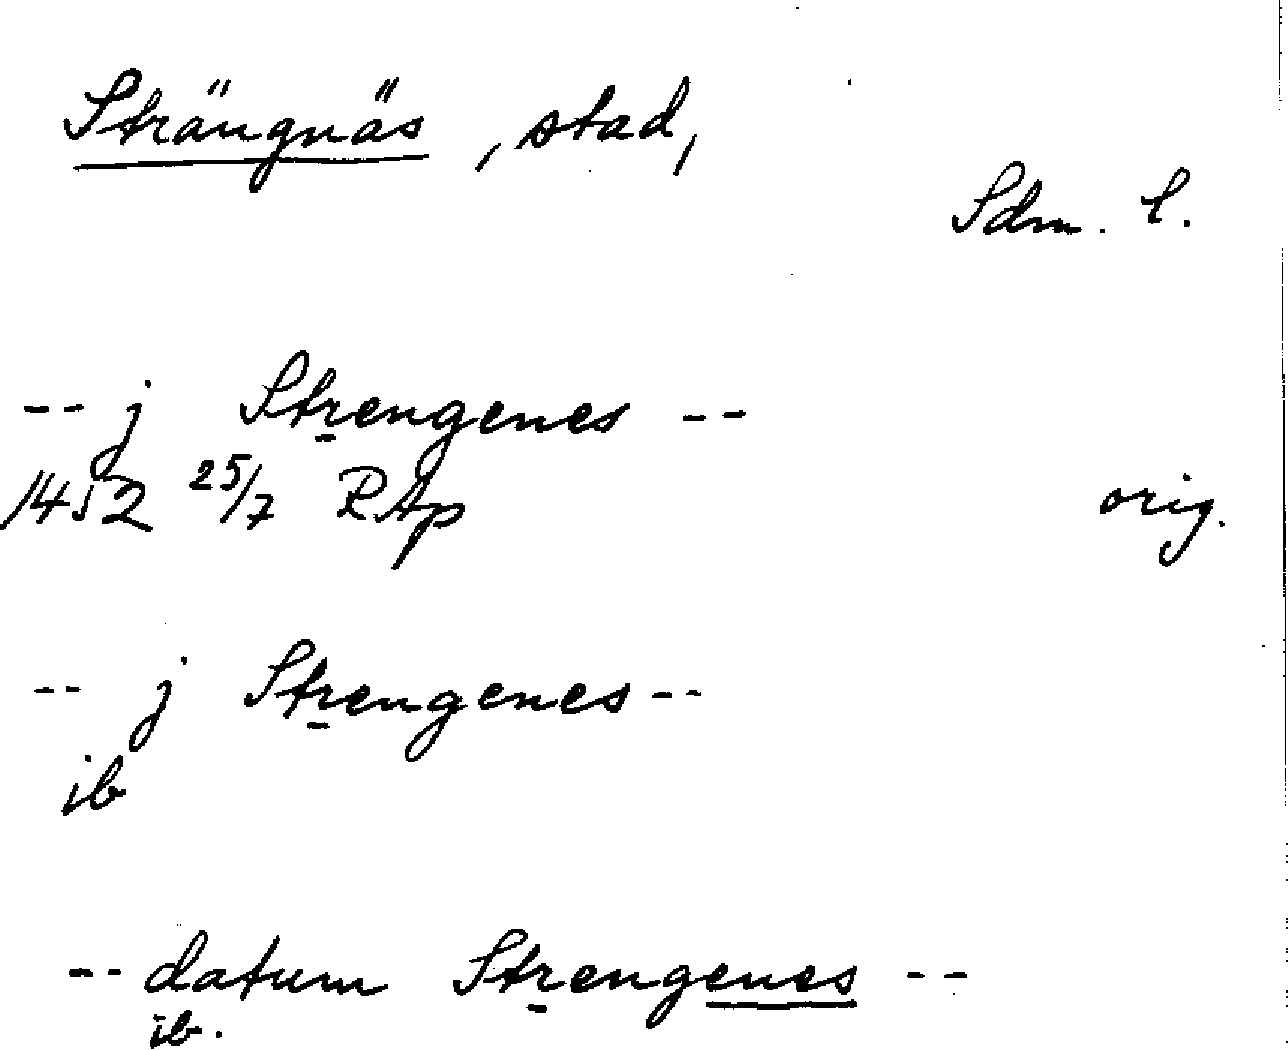 Strängnäs, stad,
Sdm. l.
-- j Strengenes --
1452 25/7 RAp orig.
-- j Strengenes --
ib
-- datum Strengenes --
ib.